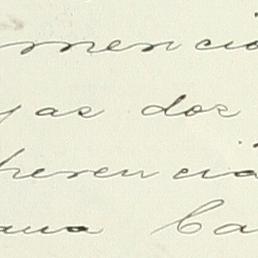 mencio
yas dos
herencia
ana Ca